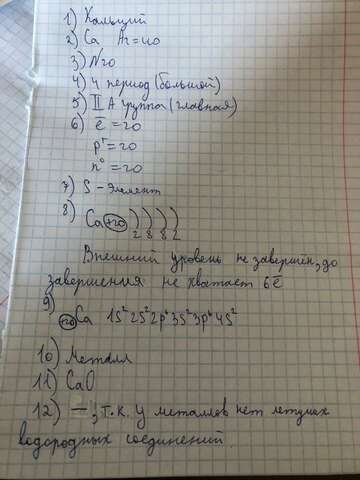 1) Кальций
2) Ca Ar=40
3) №20
4) 4 период (большой)
5) II A группа (главная)
6) ē =20
p⁺=20
n⁰=20
7) S-элемент
8) Ca +20 ) ) ) )
2 8 8 2
Внешний уровень не завершён, до
завершения не хватает 6ē
9)
+20 Ca 1S² 2S² 2p⁶ 3S² 3p⁶ 4S²
10) Металл
11) CaO
12) —, т.к. у металлов нет летучих
водородных соединений